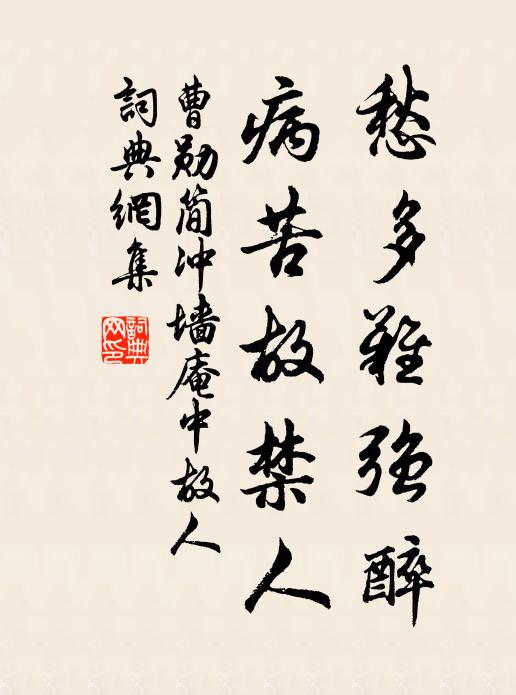 愁多难强醉
病苦故禁人
曹勋简冲墙庵中故人
詞典網集
詞典网印